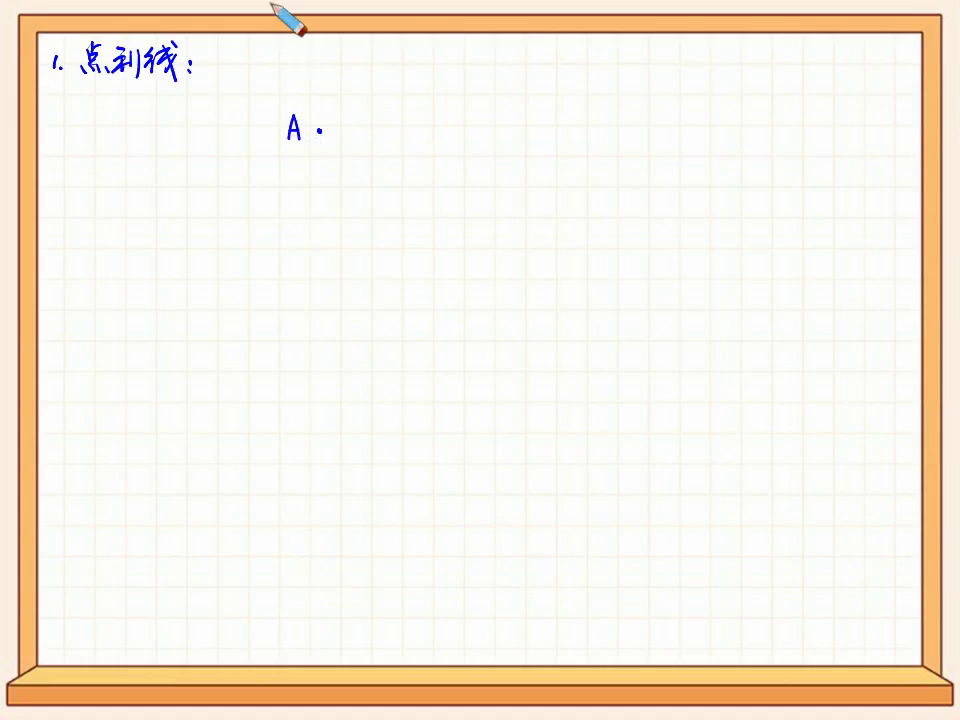 1. 点到线：
A ·